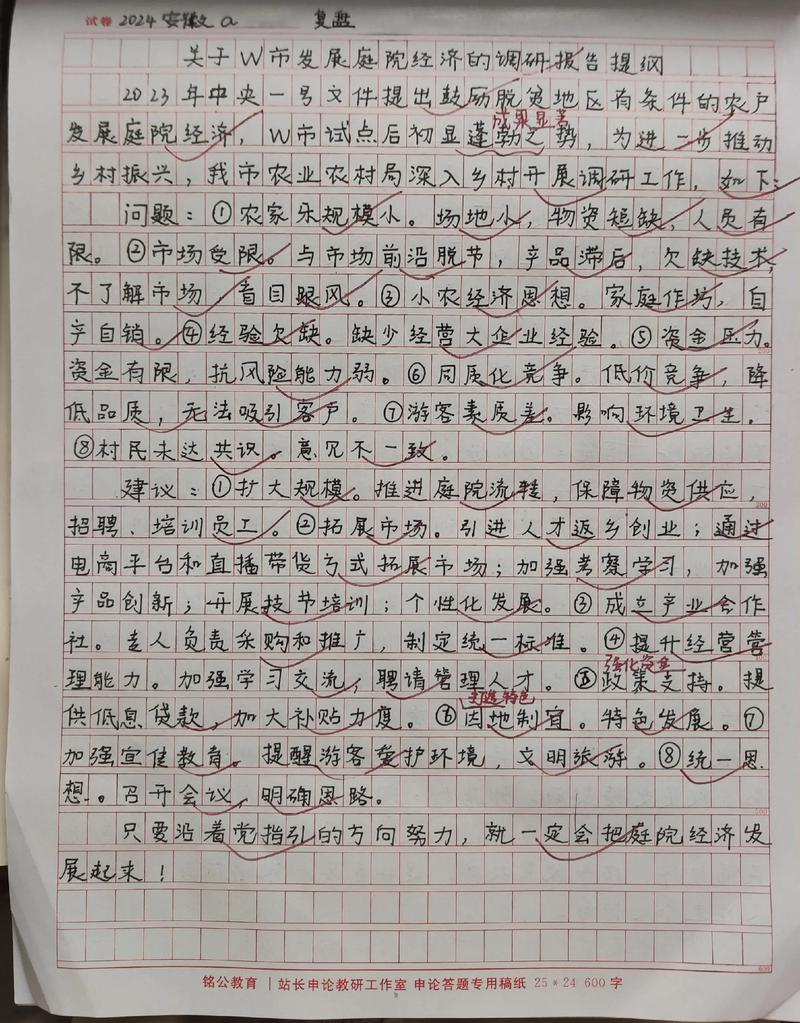 试卷 2024 安徽 a 复盘
关于W市发展庭院经济的调研报告提纲
2023年中央一号文件提出鼓励脱贫地区有条件的农户
成果显著
发展庭院经济，W市试点后初显蓬勃之势，为进一步推动
乡村振兴，我市农业农村局深入乡村开展调研工作，如下：
问题：①农家乐规模小。场地小，物资短缺，人员有
限。②市场受限。与市场前沿脱节，产品滞后，欠缺技术，
不了解市场，盲目跟风。③小农经济思想。家庭作坊，自
产自销。④经验欠缺。缺少经营大企业经验。⑤资金压力。
200
资金有限，抗风险能力弱。⑥同质化竞争。低价竞争，降
低品质，无法吸引客户。⑦游客素质差。影响环境卫生。
⑧村民未达共识。意见不一致。
建议：①扩大规模。推进庭院流转，保障物资供应，
招聘、培训员工。②拓展市场。引进人才返乡创业；通过
电商平台和直播带货方式拓展市场；加强考察学习，加强
产品创新；开展技节培训；个性化发展。③成立产业合作
社。专人负责采购和推广，制定统一标准。④提升经营管
强化资金
理能力。加强学习交流，聘请管理人才。⑤政策支持。提
打造特色
供低息贷款，加大补贴力度。⑥因地制宜。特色发展。⑦
加强宣传教育。提醒游客爱护环境，文明旅游。⑧统一思
想。召开会议，明确思路。
只要沿着党指引的方向努力，就一定会把庭院经济发
展起来！
600
铭公教育 | 站长申论教研工作室 申论答题专用稿纸 25*24 600字